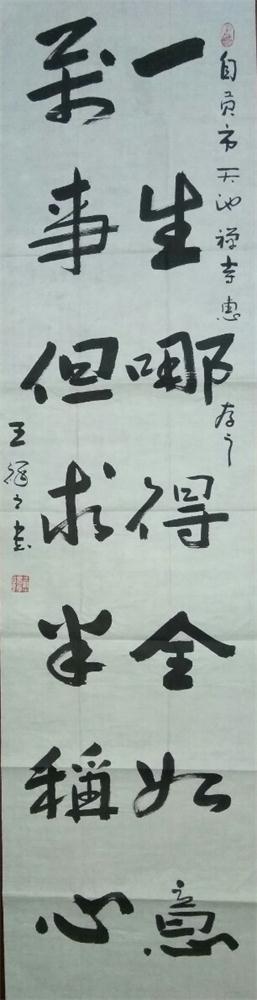 自貢市天池禅寺惠存之
一生哪得全如意
萬事但求半稱心
王
書